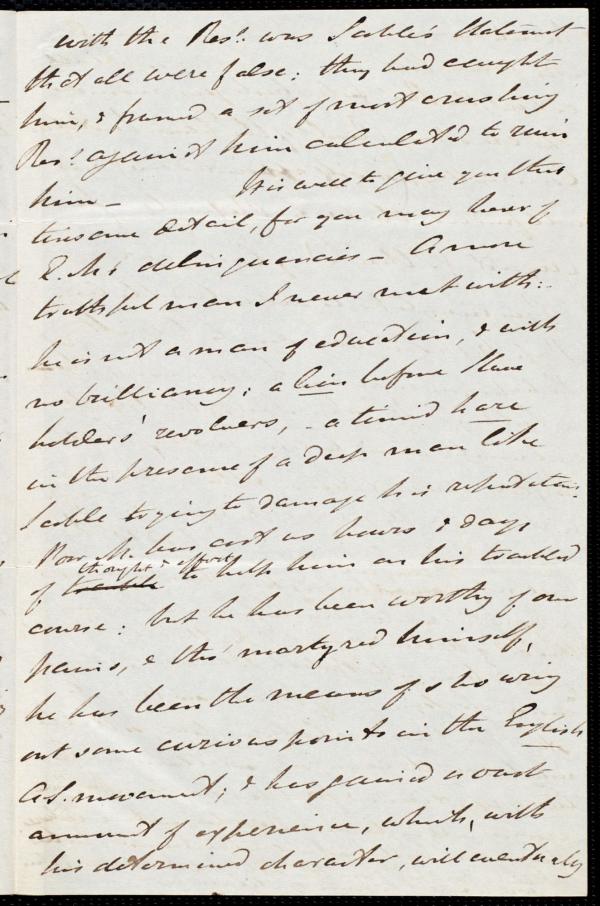 with the Res:ⁿ was Sable's statement
that all were false: they had caught
him, & framed a set of most crushing
Res:ⁿ against him calculated to ruin
him – It is well to give you this
tiresome detail, for you may hear of
E. M's delinquencies – A more
truthful man I never met with:–
he is not a man of education, & with
no brilliancy; a lion before Slave
holders' revolvers, – a timid hare
in the presence of a deep man like
Sable trying to damage his reputation.
Poor M. has cost us hours & days
of thought & effort to help him on his troubled
course: but he has been worthy of our
pains, & tho' martyred himself,
he has been the means of showing
out some curious points in the English
A.S. movement; & has gained a vast
amount of experience, which, with
his determined character, will eventually